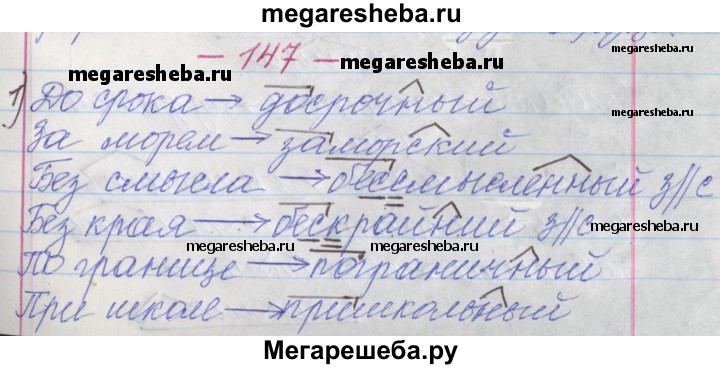 megaresheba.ru
— 147 —
megaresheba.ru
megaresheba.ru
1) До срока → досрочный
За морем → заморский
Без смысла → бессмысленный з//с
Без края → бескрайний з//с
megaresheba.ru
megaresheba.ru
По границе → пограничный
При школе → пришкольный
Мегарешеба.ру